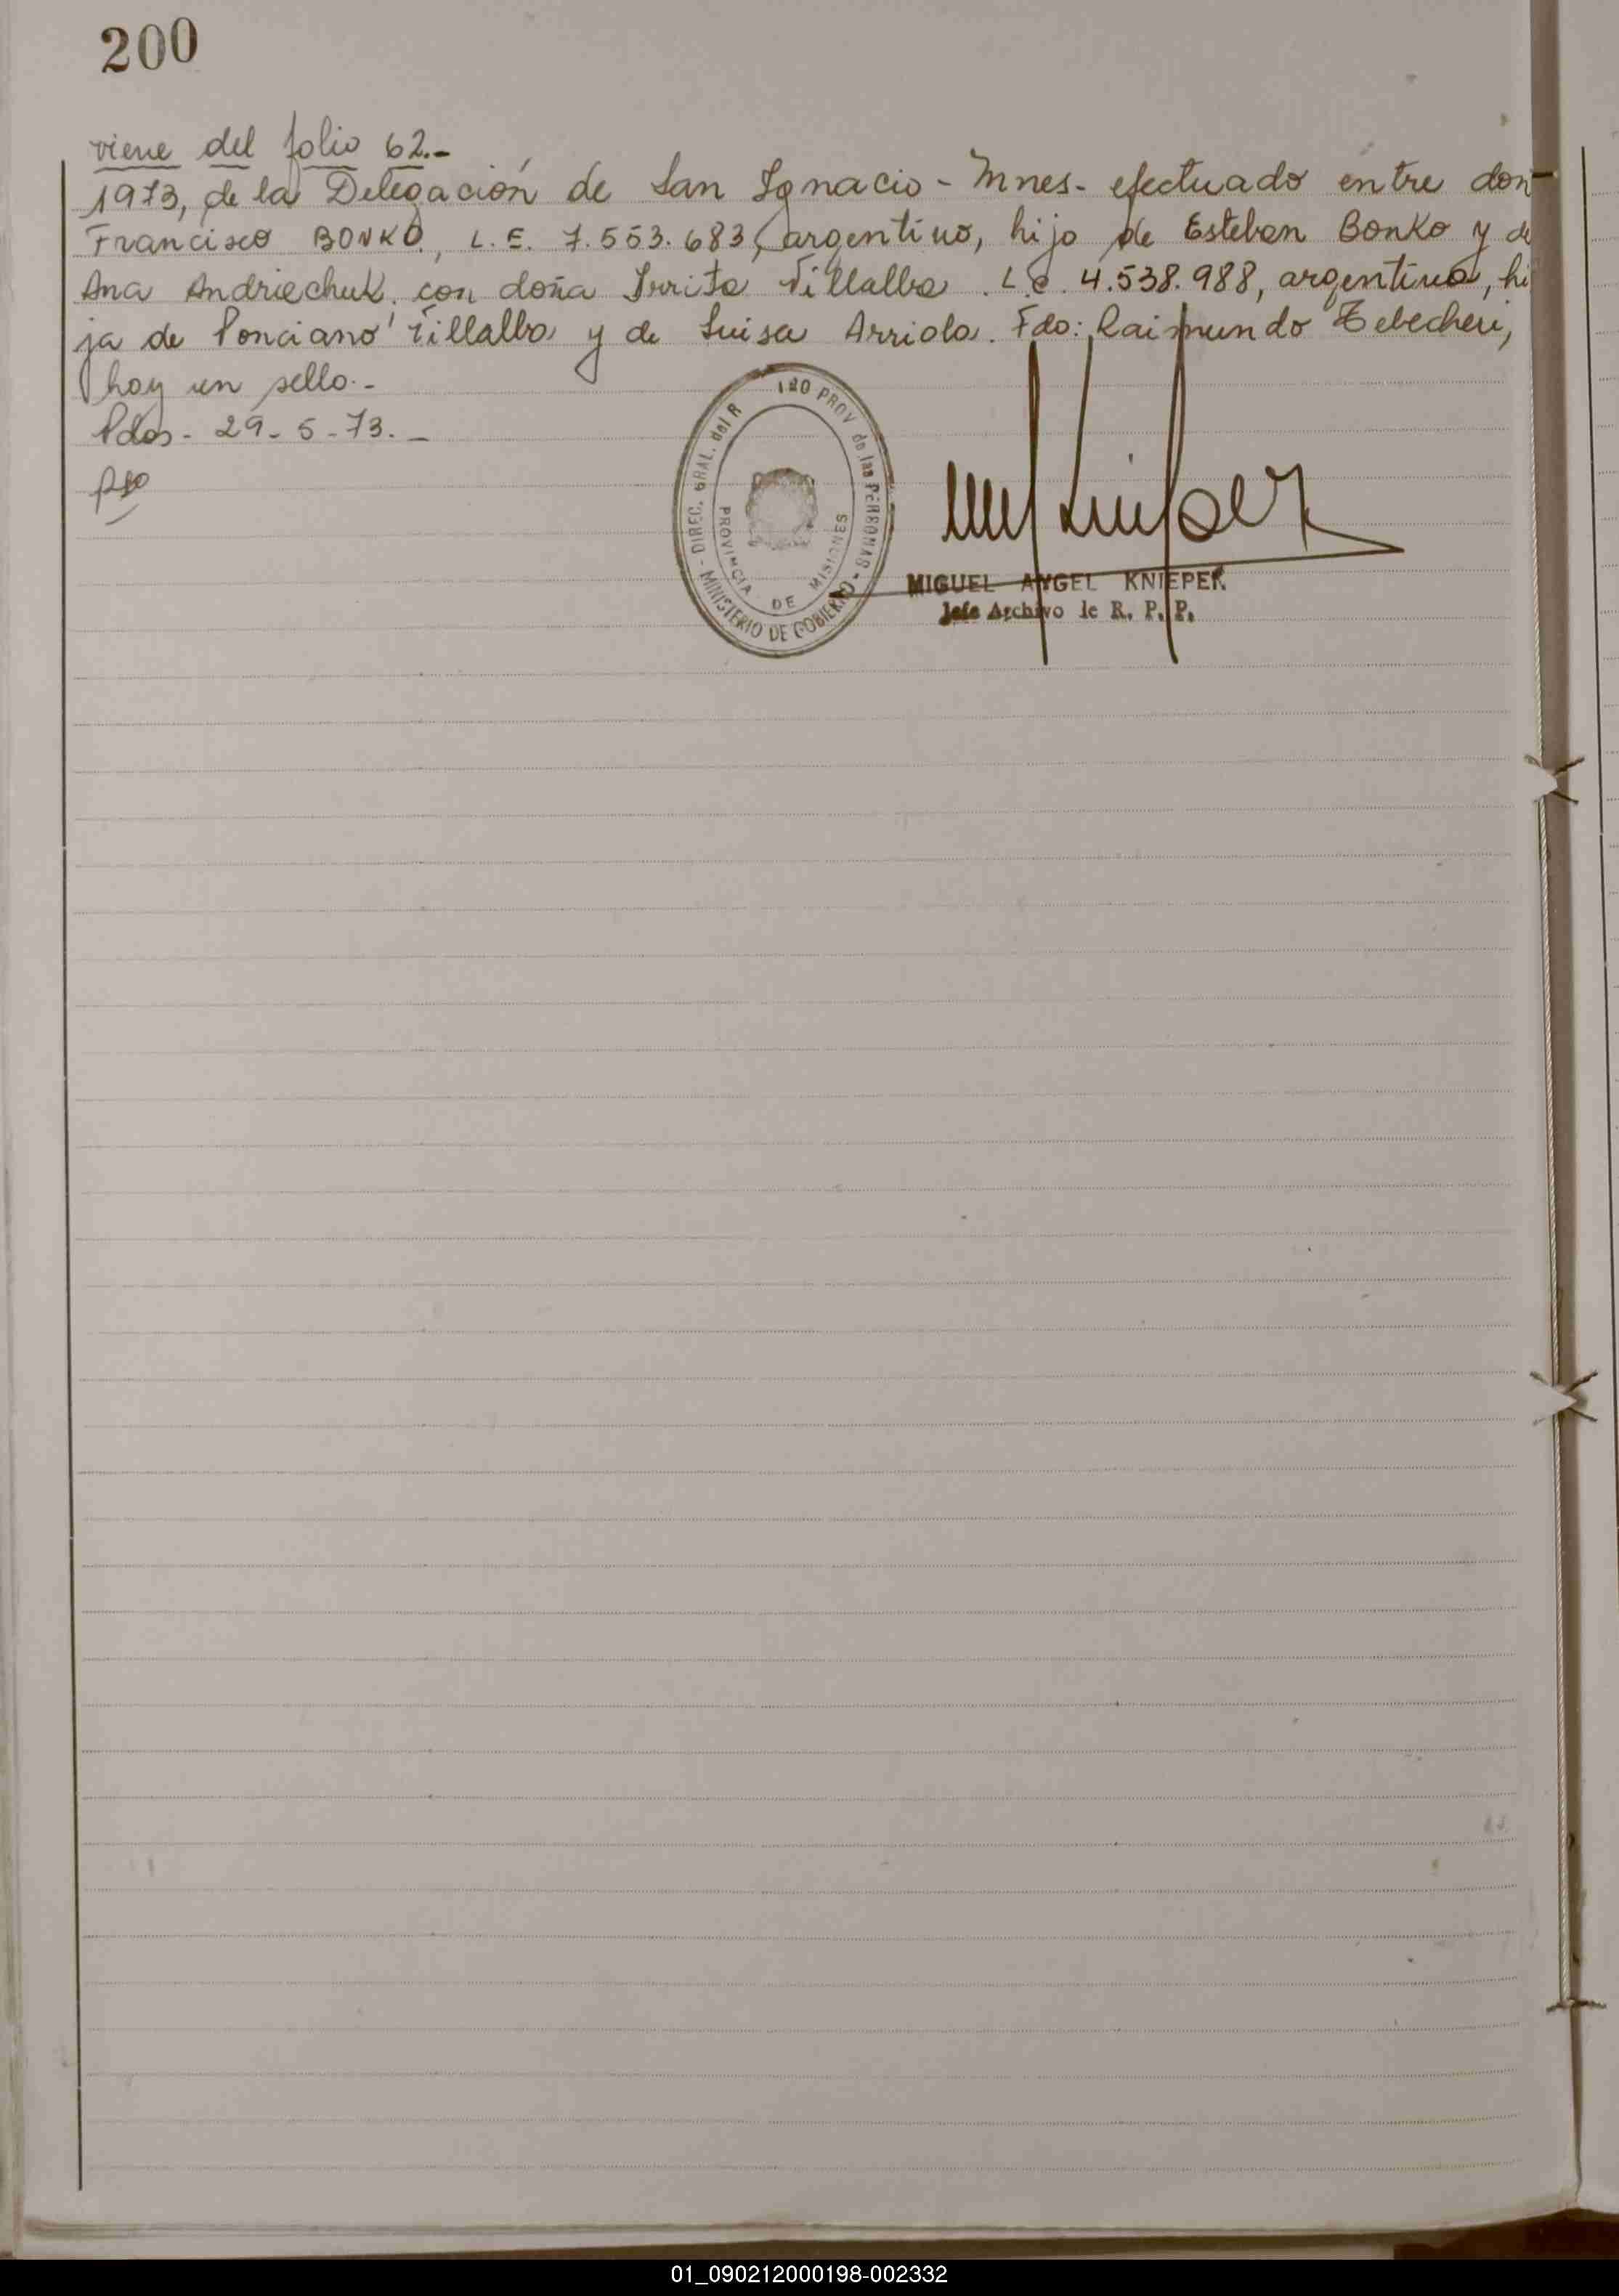 200
viene del folio 62.-
1973, de la Delegación de San Ignacio - Mnes - efectuado entre don
Francisco BONKO, L.E. 7.553.683, argentino, hijo de Esteban Bonko y de
Ana Andriechuk. con doña Irrita Villalba. L.C. 4.538.988, argentina, hi
ja de Ponciano Villalba y de Luisa Arriola. Fdo: Raimundo Tebecheri,
hay un sello.-
Pdas - 29-5-73.-
DIREC. GRAL. del R PROV de las PERSONAS - MINISTERIO DE GOBIERNO -
PROVINCIA DE MISIONES
MIGUEL ANGEL KNIEPER
Jefe Archivo de R. P. P.
01_090212000198-002332